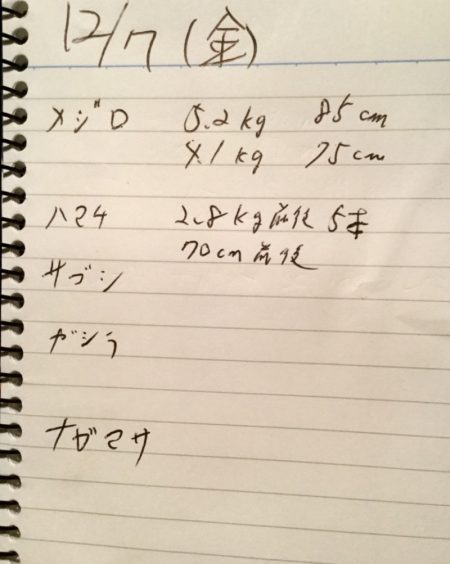 12/7(金)
メジロ 5.2kg 85cm
4.1kg 75cm
ハマチ 2.8kg前後 5本
70cm前後
サゴシ
ガシラ
ナガマサ